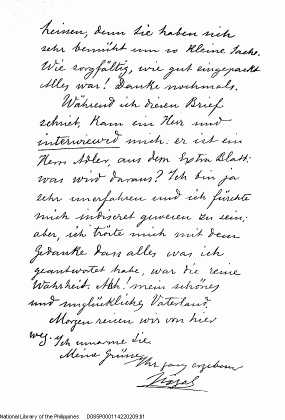 heissen, denn Sie haben sich
sehr bemüht um so kleine Sache.
Wie sorgfältig, wie gut eingepackt
Alles war! Danke nochmals.
Während ich diesen Brief
schrieb, kam ein Herr und
interwiewed mich. er ist ein
Herr Adler, aus dem Extra Blatt:
was wird daraus? Ich bin ja
sehr unerfahren und ich fürchte
mich indiscret gewesen zu sein;
aber, ich tröste mich mit dem
Gedanke dass alles was ich
geantwortet habe, war die reine
Wahrheit. Ach! mein schönes
und unglückliches Vaterland.
Morgen reisen wir von hier
weg. Ich umarme Sie
Meine Grüsse
Ihr ganz ergebener
Rizal
National Library of the Philippines